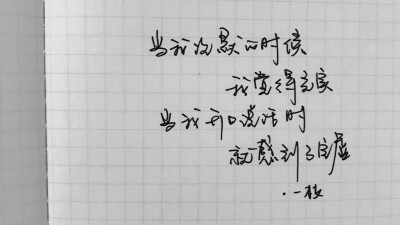 当我沉默的时候
我觉得充实
当我开口说话时
就感到了空虚
·一枝